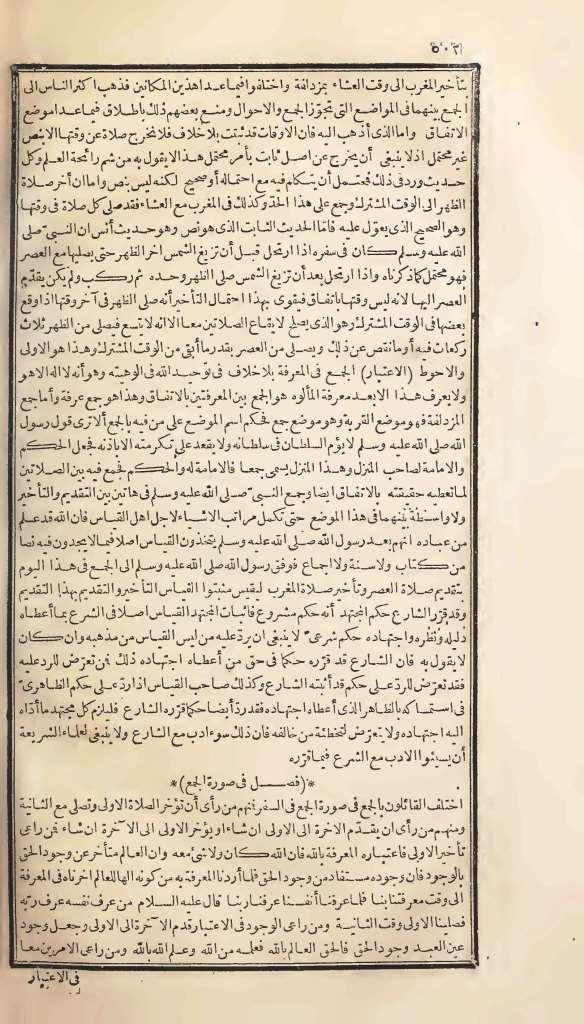 ٥٠٣
بتأخير المغرب الى وقت العشاء بمزدلفة واختلفوا فيما عدا هذين المكانين فذهب اكثر الناس الى
الجمع بينهما فى المواضع التى تجوّز الجمع والاحوال ومنع بعضهم ذلك باطلاق فيما عدا موضع
الاتفاق واما الذى أذهب اليه فان الاوقات قد ثبتت بلا خلاف فلا نخرج صلاة عن وقتها الا بنص
غير محتمل اذ لا ينبغى أن يخرج عن اصل ثابت بأمر محتمل هذا لا يقول به من شم رائحة العلم وكل
حديث ورد فى ذلك فمحتمل أن يتكلم فيه مع احتماله أو صحيح لكنه ليس بنص واما ان أخر صلاة
الظهر الى الوقت المشترك وجمع على هذا الحد وكذلك فى المغرب مع العشاء فقد صلى كل صلاة فى وقتها
وهو الصحيح الذى يعوّل عليه فامّا الحديث الثابت الذى هو نص وهو حديث أنس ان النبى صلى
الله عليه وسلم كان فى سفره اذا ارتحل قبل أن تزيغ الشمس اخر الظهر حتى يصليها مع العصر
فهو محتمل كما ذكرناه واذا ارتحل بعد أن تزيغ الشمس صلى الظهر وحده ثم ركب ولم يكن يقدّم
العصر اليها لانه ليس وقتها باتفاق فيقوى بهذا احتمال التأخير أنه صلى الظهر فى آخر وقتها اذا وقع
بعضها فى الوقت المشترك وهو الذى يصلح لايقاع الصلاتين معا الا انه لا يتسع فيصلى من الظهر ثلاث
ركعات فيه أو ما نقص عن ذلك ويصلى من العصر بقدر ما أبقى من الوقت المشترك وهذا هو الاولى
والاحوط (الاعتبار) الجمع فى المعرفة بلا خلاف فى توحيد الله فى الوهيته وهو أنه لا اله الا هو
ولا يعرف هذا الا بعد معرفة المألوه هو الجمع بين المعرفتين بالاتفاق وهذا هو جمع عرفة وأما جمع
المزدلفة فهو موضع القربة وهو موضع جمع فحكم اسم الموضع على من فيه بالجمع ألا ترى قول رسول
الله صلى الله عليه وسلم لا يؤم السلطان فى سلطانه ولا يقعد على تكرمته الا باذنه فجعل الحكم
والامامة لصاحب المنزل وهذا المنزل يسمى جمعا فالامامة له والحكم فجمع فيه بين الصلاتين
لما تعطيه حقيقته بالاتفاق ايضا وجمع النبى صلى الله عليه وسلم فى هاتين بين التقديم والتأخير
ولا واسطة بينهما فى هذا الموضع حتى تكمل مراتب الاشياء لاجل اهل القياس فان الله قد علم
من عباده انهم بعد رسول الله صلى الله عليه وسلم يتخذون القياس اصلا فيما لا يجدون فيه نصا
من كتاب ولا سنة ولا اجماع فوفق رسول الله صلى الله عليه وسلم الى الجمع فى هذا اليوم
بتقديم صلاة العصر وتأخير صلاة المغرب ليقيس مثبتوا القياس التأخير والتقديم بهذا التقديم
وقد قرّر الشارع حكم المجتهد أنه حكم مشروع فاثبات المجتهد القياس اصلا فى الشرع بما أعطاه
دليله ونظره واجتهاده حكم شرعى لا ينبغى ان يردّ عليه من ليس القياس من مذهبه وان كان
لا يقول به فان الشارع قد قرّره حكما فى حق من أعطاه اجتهاده ذلك فمن تعرّض للرد عليه
فقد تعرّض للردّ على حكم قد أثبته الشارع وكذلك صاحب القياس اذا ردّ على حكم الظاهرى
فى استمساكه بالظاهر الذى أعطاه اجتهاده فقد ردّ أيضا حكما قرّره الشارع فليلزم كل مجتهد ما أدّاه
اليه اجتهاده ولا يتعرّض لتخطئة من خالفه فان ذلك سوء ادب مع الشارع ولا ينبغى لعلماء الشريعة
أن يسيئوا الادب مع الشرع فيما قرّره
*(فصل فى صورة الجمع)*
اختلف القائلون بالجمع فى صورة الجمع فى السفر فمنهم من رأى أن تؤخر الصلاة الاولى وتصلى مع الثانية
ومنهم من رأى ان يقدّم الاخرة الى الاولى ان شاء او يؤخر الاولى الى الآخرة ان شاء فمن راعى
تأخير الاولى فاعتباره المعرفة بالله فان الله كان ولا شئ معه وان العالم متأخر عن وجود الحق
بالوجود فان وجوده مستفاد من وجود الحق فلما أردنا المعرفة به من كونه الها للعالم اخرناه فى المعرفة
الى وقت معرفتنا بنا فلما عرفنا أنفسنا عرفنا ربنا قال عليه السلام من عرف نفسه عرف ربه
فصلينا الاولى وقت الثانية ومن راعى الوجود فى الاعتبار قدم الآخرة الى الاولى وجعل وجود
عين العبد وجود الحق فالحق العالم بالله فعلمه من الله وعلم الله بالله ومن راعى الامرين معا
فى الاعتبار